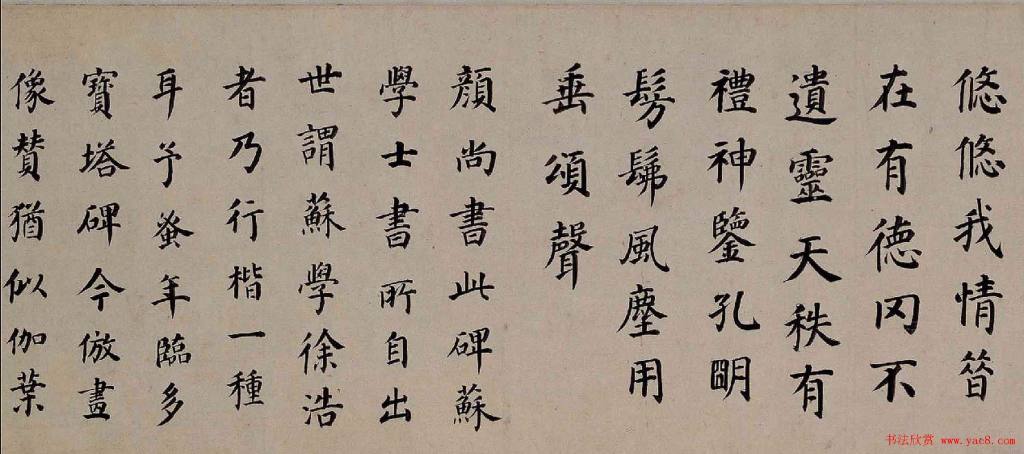 悠悠我情昔
在有德罔不
遺靈天秩有
禮神鑒孔明
髣髴風塵用
垂頌聲
顏尚書此碑蘇
學士書所自出
世謂蘇學徐浩
者乃行楷一種
耳予蚤年臨多
寶塔碑今倣畫
像贊猶似伽葉
书法欣赏 www.yac8.com